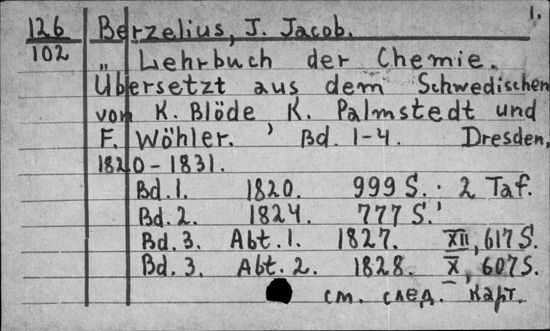 1.
126 Berzelius, J. Jacob.
102 „ Lehrbuch der Chemie.
Übersetzt aus dem Schwedischen
von K. Blöde, K. Palmstedt und
F. Wöhler. Bd. 1-4. Dresden,
1820-1831.
Bd. 1. 1820. 999 S. 2 Taf.
Bd. 2. 1824. 777 S.
Bd. 3. Abt. 1. 1827. XII, 617 S.
Bd. 3. Abt. 2. 1828. X, 607 S.
см. след. карт.